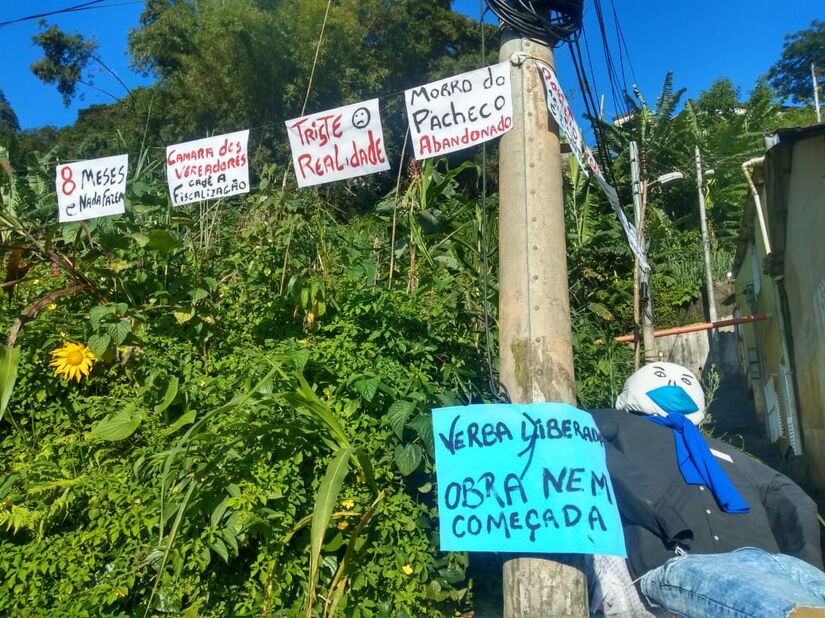 8 MESES
e NADA FAZEM
CAMARA DOS
VEREADORES
CADÊ A
FISCALIZAÇÃO
TRISTE
REALIDADE
MORRO DO
PACHECO
ABANDONADO
VERBA LIBERADA
OBRA NEM
COMEÇADA